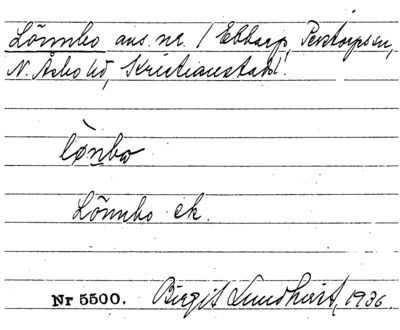 Lönnbo avs. nr. 1 Ebbarp, Perstorps sn,
N. Åsbo hd, Kristianstads l.
lònbo
Lönnbo ek.
Nr 5500. Birgit Lundkvist, 1936.